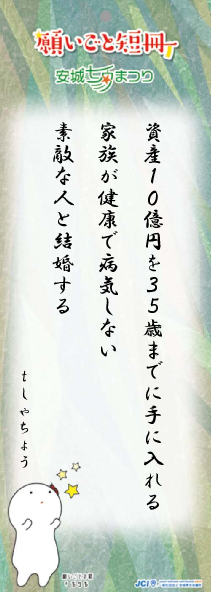 願いごと短冊
安城七夕まつり
資産10億円を35歳までに手に入れる
家族が健康で病気しない
素敵な人と結婚する
tしゃちょう
JCI